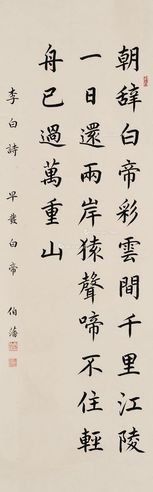 朝辭白帝彩雲間千里江陵
一日還兩岸猿聲啼不住輕
舟已過萬重山
李白詩 早發白帝 伯藩